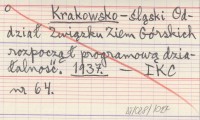 Krakowsko-śląski Od-
dział Związku Ziem Górskich
rozpoczął programową dzia-
łalność. 1937. — IKC
nr 64.